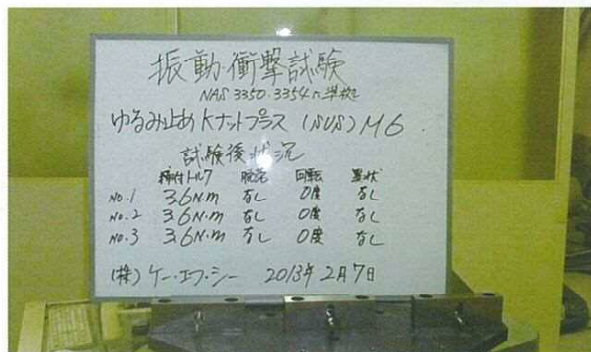 振動衝撃試験
NAS 3350・3354に準拠
ゆるみ止めKナットプラス (SUS) M6
試験後状況
締付トルク 脱落 回転 異状
NO.1 3.6N・m なし 0度 なし
NO.2 3.6N・m なし 0度 なし
NO.3 3.6N・m なし 0度 なし
(株)ケー・エフ・シー 2013年2月7日